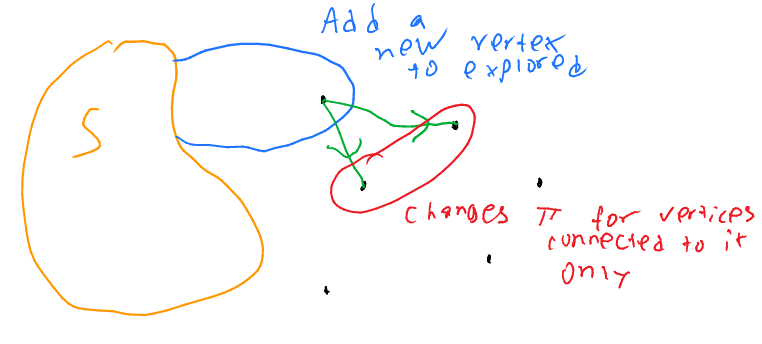 Add a
new vertex
to explored
S
changes π for vertices
connected to it
only